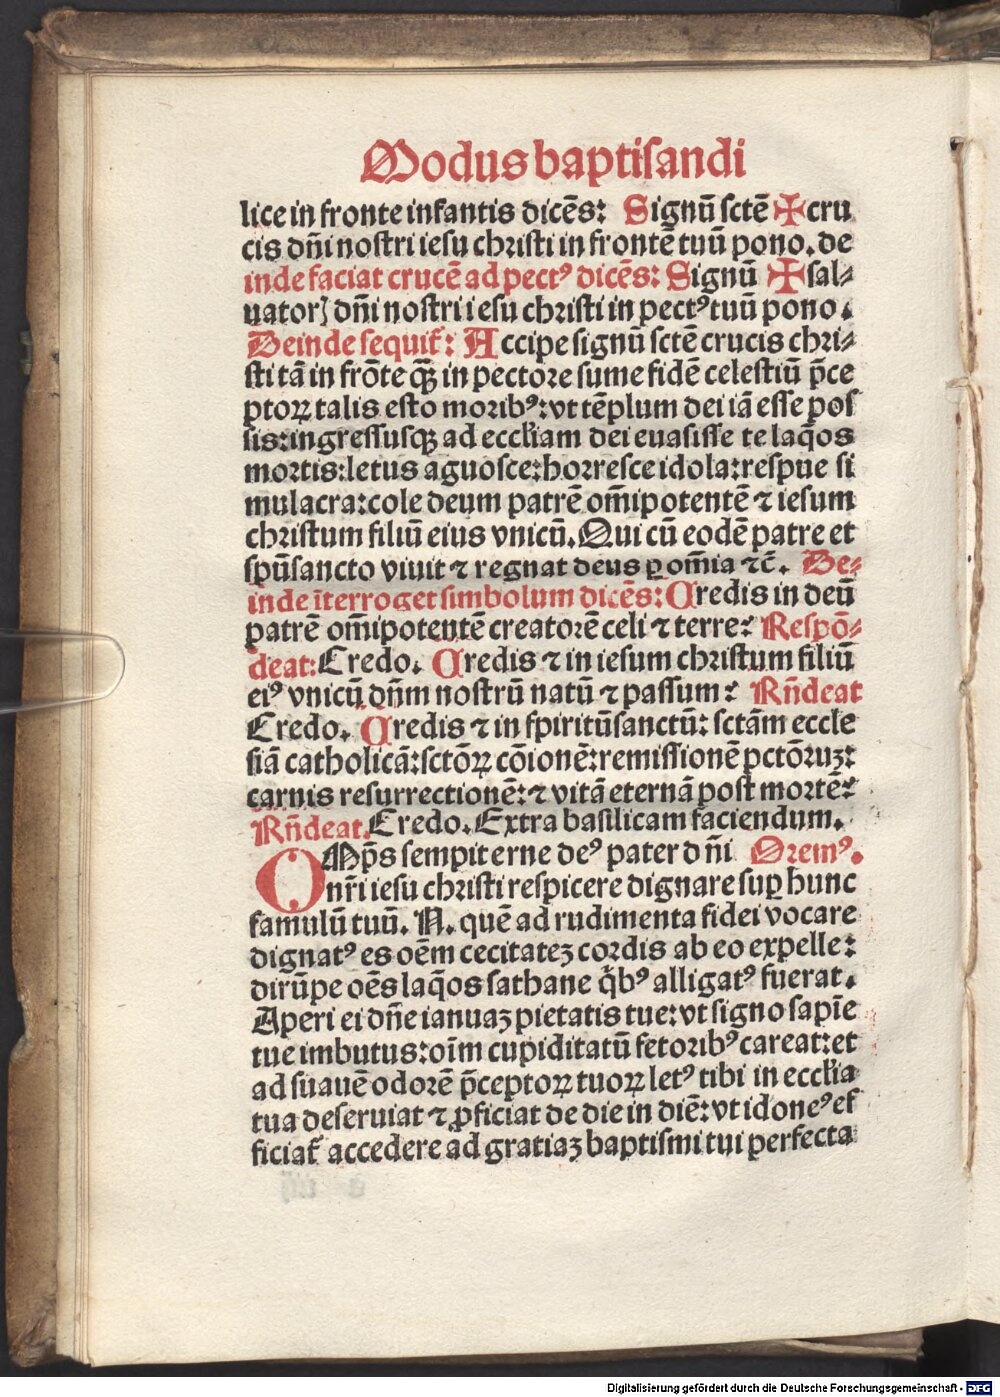 Modus baptisandi
lice in fronte infantis dicẽs: Signũ sctẽ ✠ cru
cis dñi nostri iesu christi in frontẽ tuũ pono. de
inde faciat crucẽ ad pectꝰ dicẽs: Signũ ✠ sal⸗
uatorꝭ dñi nostri iesu christi in pectꝰ tuũ pono.
Deinde sequit᷑: Accipe signũ sctẽ crucis chri⸗
sti tã in frõte qꝫ̃ in pectore sume fidẽ celestiũ p̃ce
ptoꝝ talis esto moribꝰ: vt tẽplum dei iã esse pos
sis: ingressusqꝫ ad eccƚiam dei euasisse te laq̃os
mortis: letus aguosce: horresce idola: respue si
mulacra: cole deum patrẽ om̃ipotentẽ ⁊ iesum
christum filiũ eius vnicũ. Qui cũ eodẽ patre et
spũsancto viuit ⁊ regnat deus ꝑ om̃ia ⁊c̃. De⸗
inde ĩterroget simbolum dicẽs: Credis in deũ
patrẽ om̃ipotentẽ creatorẽ celi ⁊ terre: Respõ⸗
deat: Credo. Credis ⁊ in iesum christum filiũ
eiꝰ vnicũ dñm nostrũ natũ ⁊ passum: Rñdeat
Credo. Credis ⁊ in spiritũsanctũ: sctãm eccle
siã catholicã: sctõꝝ cõionẽ: remissionẽ pctõruꝫ:
carnis resurrectionẽ: ⁊ vitã eternã post mortẽ:
Rñdeat. Credo. Extra basilicam faciendum.
OMp̃s sempiterne deꝰ pater dñi Oremꝰ.
nr̃i iesu christi respicere dignare suꝑ hunc
famulũ tuũ. N. quẽ ad rudimenta fidei vocare
dignatꝰ es oẽm cecitateꝫ cordis ab eo expelle:
dirũpe oẽs laq̃os sathane q̃bꝰ alligatꝰ fuerat.
Aperi ei dñe ianuaꝫ pietatis tue: vt signo sapĩe
tue imbutus: oĩm cupiditatũ fetoribꝰ careat: et
ad suauẽ odorẽ p̃ceptoꝝ tuoꝝ letꝰ tibi in eccƚia
tua deseruiat ⁊ ꝓficiat de die in diẽ: vt idoneꝰ ef
ficiat᷑ accedere ad gratiaꝫ baptismi tui perfecta
Digitalisierung gefördert durch die Deutsche Forschungsgemeinschaft - DFG